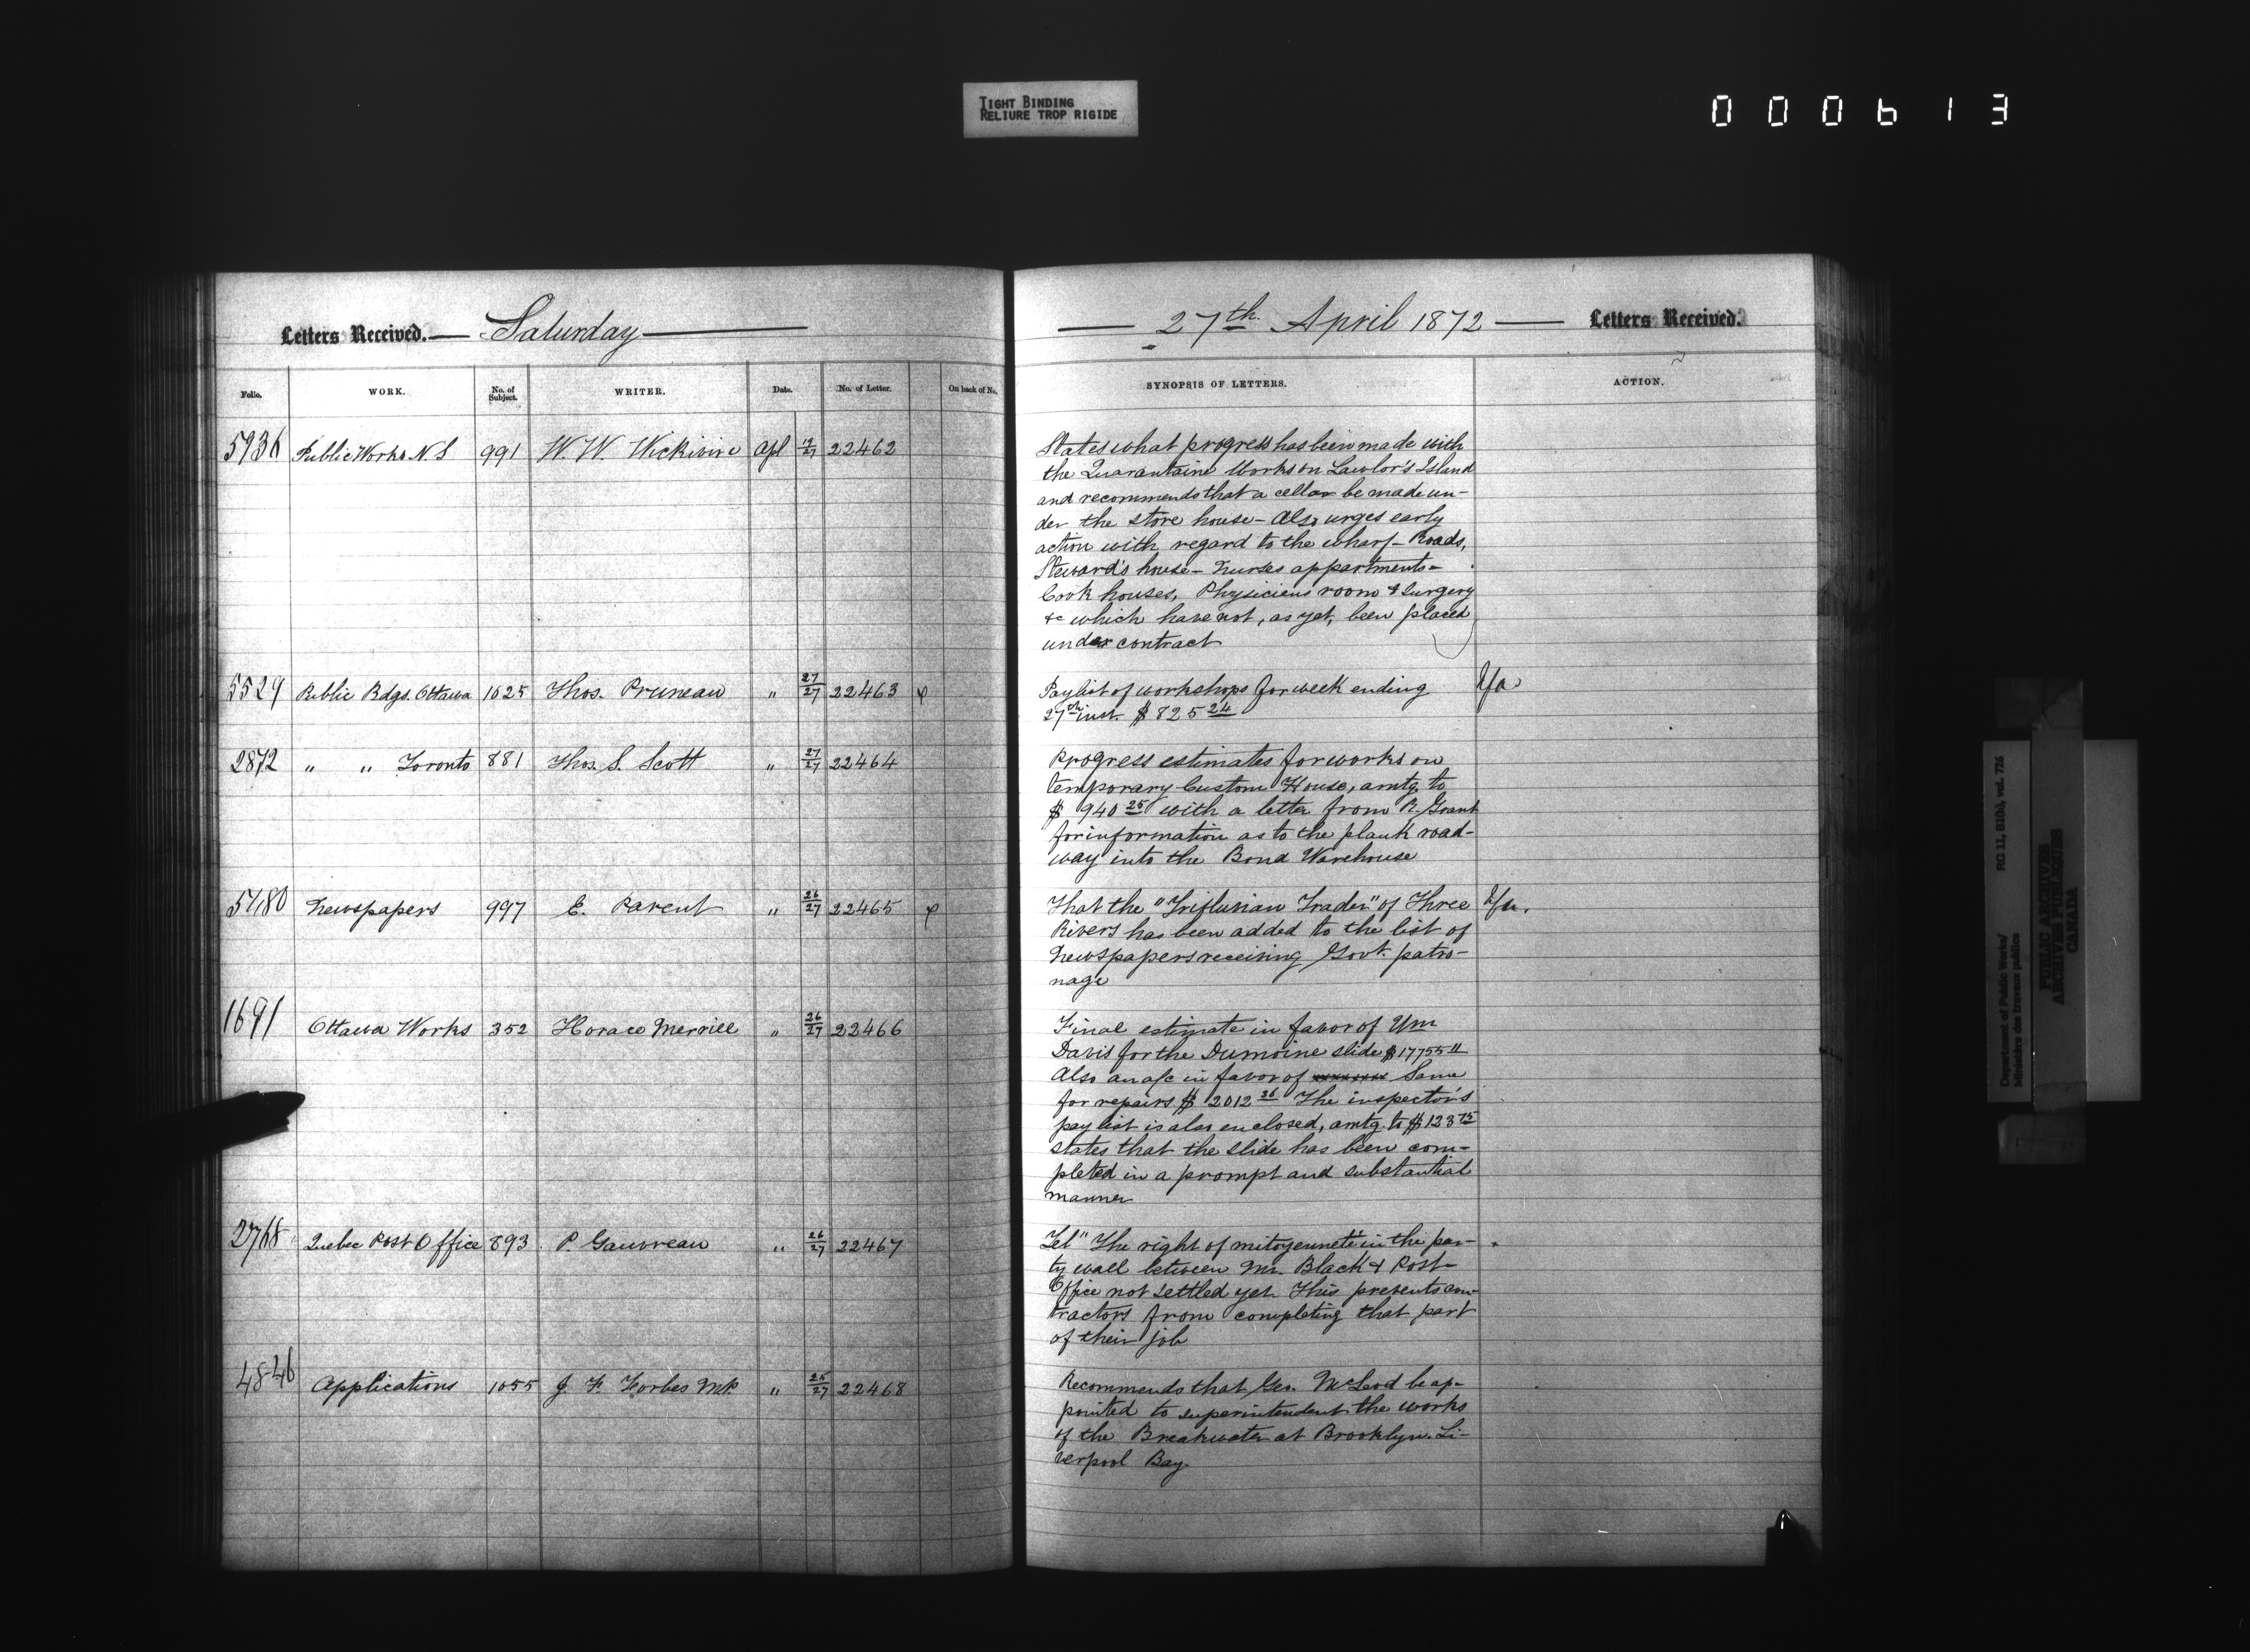 TIGHT BINDING
RELIURE TROP RIGIDE
000613
Letters Received. — Saturday —
Folio. WORK. No. of Subject. WRITER. Date. No. of Letter. On back of No.
5936 Public Works N.S 991 W. W. Wickwire Apl 19/27 22462
5529 Public Bdgs. Ottawa 1025 Thos. Pruneau " 27/27 22463
2872 " " Toronto 881 Thos. S. Scott " 27/27 22464
5480 Newspapers 997 E. Parent " 26/27 22465
1691 Ottawa Works 352 Horace Merrill " 26/27 22466
2768 Quebec Post Office 893 P. Gauvreau " 26/27 22467
4846 Applications 1055 J. F. Forbes M.P. " 25/27 22468
— 27th April 1872 — Letters Received.
SYNOPSIS OF LETTERS. ACTION.
States what progress has been made with
the Quarantaine Works on Lawlor's Island
and recommends that a cellar be made un-
der the store house – Also urges early
action with regard to the wharf – Roads,
Steward's house – Nurses appartments –
Cook houses, Physiciens room & Surgery
&c which have not, as yet, been placed
under contract
Paylist of workshops for week ending
27th inst. $825 24
Progress estimates for works on
temporary Custom House, amtg. to
$ 940 25 with a letter from R. Grant
for information as to the plank road-
way into the Bond Warehouse
That the "Triflusian Trader" of Three
Rivers has been added to the list of
Newspapers receiving Govt. patro-
nage
Final estimate in favor of Wm
Davis for the Dumoine slide $17755 11
Also an a/c in favor of Same
for repairs $ 2012 36 The inspector's
pay list is also enclosed, amtg. to $123 75
states that the slide has been com-
pleted in a prompt and substantial
manner
Tel" The right of mitoyenneté in the par-
ty wall between Mr. Black & Post-
Office not settled yet. This prevents con-
tractors from completing that part
of their job
Recommends that Geo. McLeod be ap-
pointed to superintendent the works
of the Breakwater at Brooklyn. Li-
verpool Bay.
Department of Public Works/ RG 11, B1(b), vol. 726
Ministère des travaux publics
PUBLIC ARCHIVES
ARCHIVES PUBLIQUES
CANADA